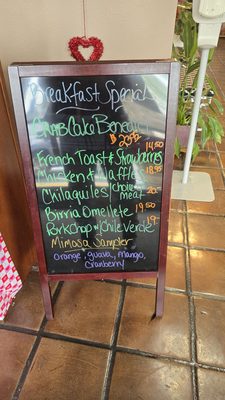 Breakfast Specials
CrabCake Benedict
$23.95
French Toast & Strawberries 14.50
Chicken & Waffles 18.95
Chilaquiles w/choice meat 20.
Birria Omelette 19.50
Porkchop w/chile verde 19.
Mimosa Sampler
Orange, guava, Mango,
Cranberry